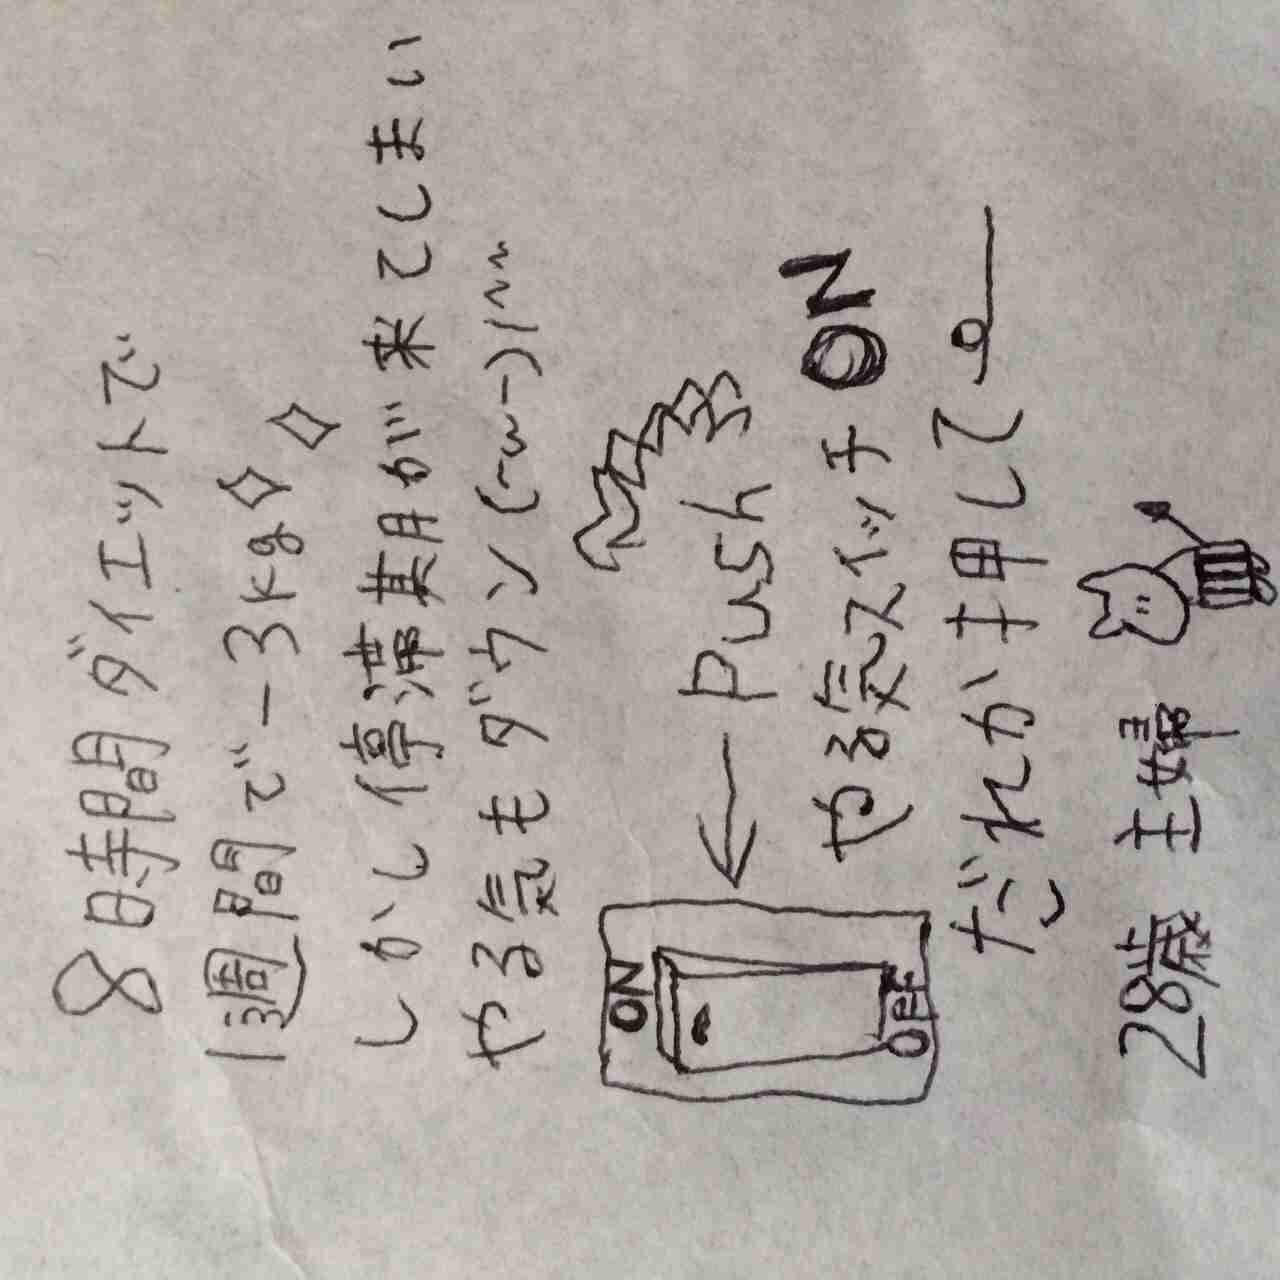 8時間ダイエットで
1週間で-3kg◇◇
しかし停滞期が来てしまい
やる気もダウン(-ω-)/~~
ON
OFF
← Push
やる気スイッチON
だれか押して
28歳 主婦